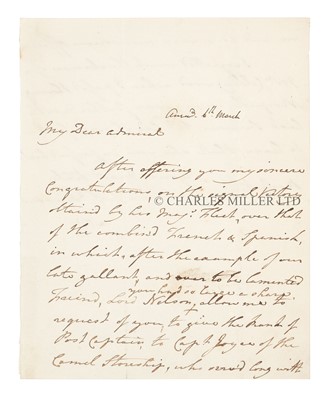 Answd. 4th March
My Dear Admiral
After offering you my sincere
Congratulations on the signal Victory
© CHARLES MILLER LTD
obtained by his Maj.s Fleet, over that
of the combined French & Spanish,
in which, after the example of our
late gallant, and ever to be lamented
you had so large a share.
Friend, Lord Nelson, allow me to
request of you, to give the Rank of
Post Captain, to Capt Joyce of the
Camel Storeship, who served long with